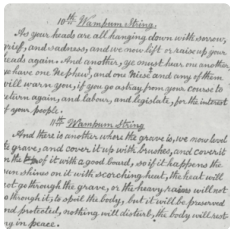 10th Wampum String.
As your heads are all hanging down with sorrow,
grief, and sadness, and we now lift or raise up your
heads again. And another, ye must hear on another
ye have one Nephew, and one Niese and any of them
will warn you, if you go astray from your course to
return again, and labour, and legislate, for the interest
of your people.
11th Wampum String
And there is another where the grave is, we now level
the grave, and cover it up with brushes, and cover it
on the of it with a good burd, so if it happens the
sun shines on it with scorching heat, the heat will
not go through the grave, or the heavy rains will not
go through it, to spoil the body, but it will be preserved
and protected, nothing will disturb, the body will rest
ay in peace.